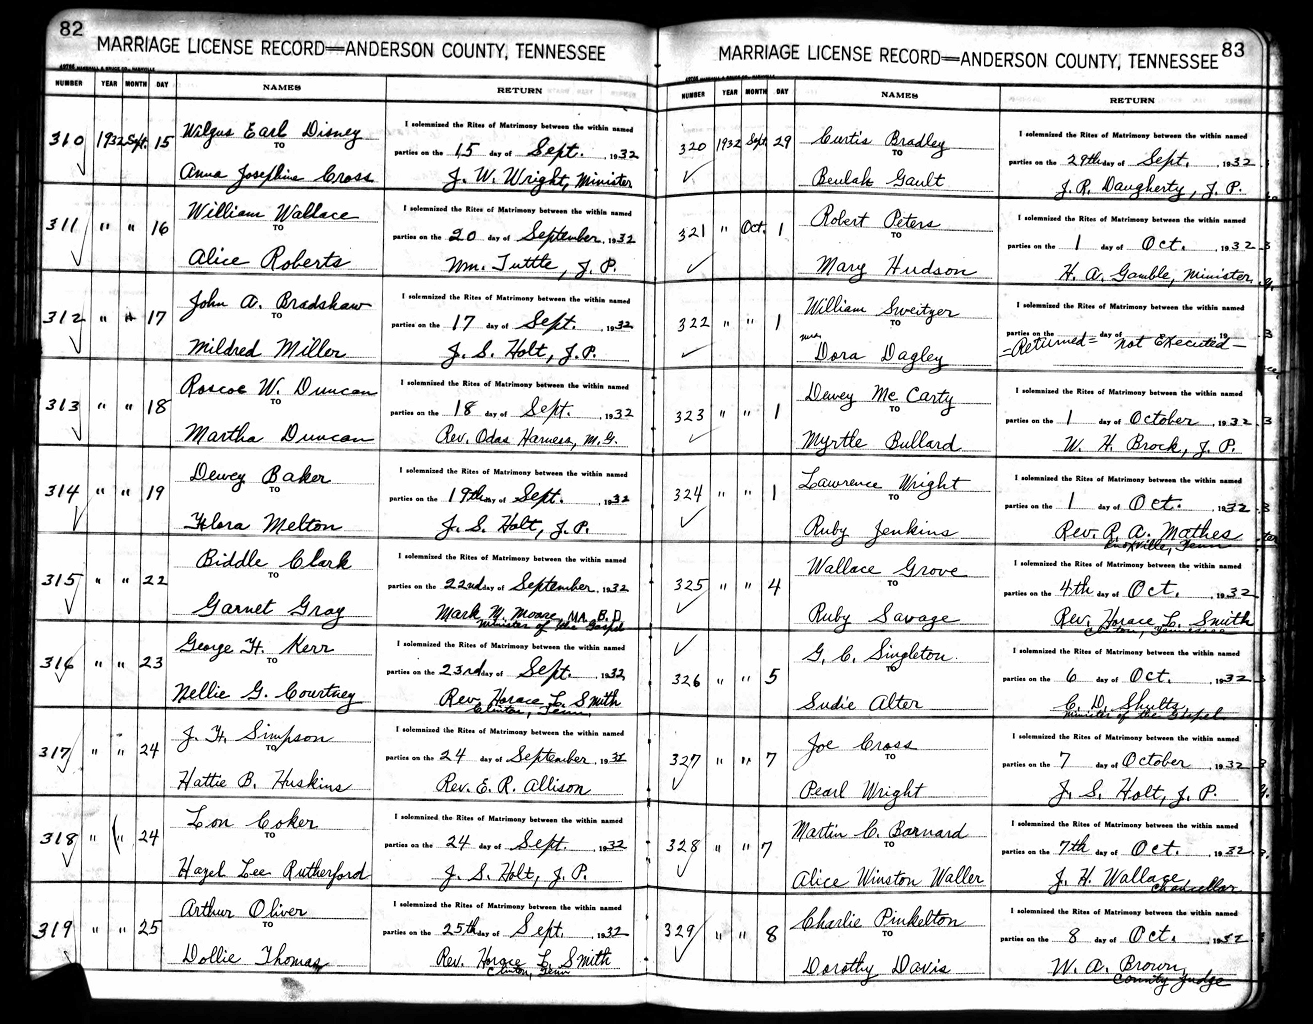 82
MARRIAGE LICENSE RECORD—ANDERSON COUNTY, TENNESSEE
NUMBER YEAR MONTH DAY NAMES RETURN
310 1932 Sept. 15 Wilgus Earl Disney
TO
Anna Josephine Cross
I solemnized the Rites of Matrimony between the within named
parties on the 15 day of Sept., 1932
J. W. Wright, Minister
311 " " 16 William Wallace
TO
Alice Roberts
I solemnized the Rites of Matrimony between the within named
parties on the 20 day of September, 1932
Wm. Tuttle, J. P.
312 " " 17 John A. Bradshaw
TO
Mildred Miller
I solemnized the Rites of Matrimony between the within named
parties on the 17 day of Sept., 1932
J. S. Holt, J. P.
313 " " 18 Roscoe W. Duncan
TO
Martha Duncan
I solemnized the Rites of Matrimony between the within named
parties on the 18 day of Sept., 1932
Rev. Odas Harness, M. G.
314 " " 19 Dewey Baker
TO
Flora Melton
I solemnized the Rites of Matrimony between the within named
parties on the 19th day of Sept., 1932
J. S. Holt, J. P.
315 " " 22 Biddle Clark
TO
Garnet Gray
I solemnized the Rites of Matrimony between the within named
parties on the 22nd day of September, 1932
Mark M. Moore, MA. B. D
Minister of the Gospel
316 " " 23 George H. Kerr
TO
Nellie G. Courtney
I solemnized the Rites of Matrimony between the within named
parties on the 23rd day of Sept., 1932
Rev. Horace L. Smith
Clinton, Tenn.
317 " " 24 J. H. Simpson
TO
Hattie B. Huskins
I solemnized the Rites of Matrimony between the within named
parties on the 24 day of September, 1932
Rev. E. R. Allison
318 " " 24 Lon Coker
TO
Hazel Lee Rutherford
I solemnized the Rites of Matrimony between the within named
parties on the 24 day of Sept., 1932
J. S. Holt, J. P.
319 " " 25 Arthur Oliver
TO
Dollie Thomas
I solemnized the Rites of Matrimony between the within named
parties on the 25th day of Sept., 1932
Rev. Horace L. Smith
Clinton, Tenn
83
MARRIAGE LICENSE RECORD—ANDERSON COUNTY, TENNESSEE
NUMBER YEAR MONTH DAY NAMES RETURN
320 1932 Sept. 29 Curtis Bradley
TO
Beulah Gault
I solemnized the Rites of Matrimony between the within named
parties on the 29th day of Sept., 1932
J. R. Daugherty, J. P.
321 " Oct. 1 Robert Peters
TO
Mary Hudson
I solemnized the Rites of Matrimony between the within named
parties on the 1 day of Oct., 1932
H. A. Gamble, Minister
322 " " 1 William Sweitzer
TO
Mrs. Dora Dagley
I solemnized the Rites of Matrimony between the within named
parties on the day of 19
=Returned= Not Executed—
323 " " 1 Dewey Mc Carty
TO
Myrtle Bullard
I solemnized the Rites of Matrimony between the within named
parties on the 1 day of October, 1932
W. H. Brock, J. P.
324 " " 1 Lawrence Wright
TO
Ruby Jenkins
I solemnized the Rites of Matrimony between the within named
parties on the 1 day of Oct., 1932
Rev. R. A. Mathes
Knoxville, Tenn
325 " " 4 Wallace Grove
TO
Ruby Savage
I solemnized the Rites of Matrimony between the within named
parties on the 4th day of Oct., 1932
Rev. Horace L. Smith
Clinton, Tennessee
326 " " 5 G. C. Singleton
TO
Sudie Alter
I solemnized the Rites of Matrimony between the within named
parties on the 6 day of Oct., 1932
C. D. Shultz,
Minister of the Gospel
327 " " 7 Joe Cross
TO
Pearl Wright
I solemnized the Rites of Matrimony between the within named
parties on the 7 day of October, 1932
J. S. Holt, J. P.
328 " " 7 Martin C. Barnard
TO
Alice Winston Waller
I solemnized the Rites of Matrimony between the within named
parties on the 7th day of Oct., 1932
J. H. Wallace,
Chancellor
329 " " 8 Charlie Pinkelton
TO
Dorothy Davis
I solemnized the Rites of Matrimony between the within named
parties on the 8 day of Oct., 1932
W. A. Brown,
County Judge